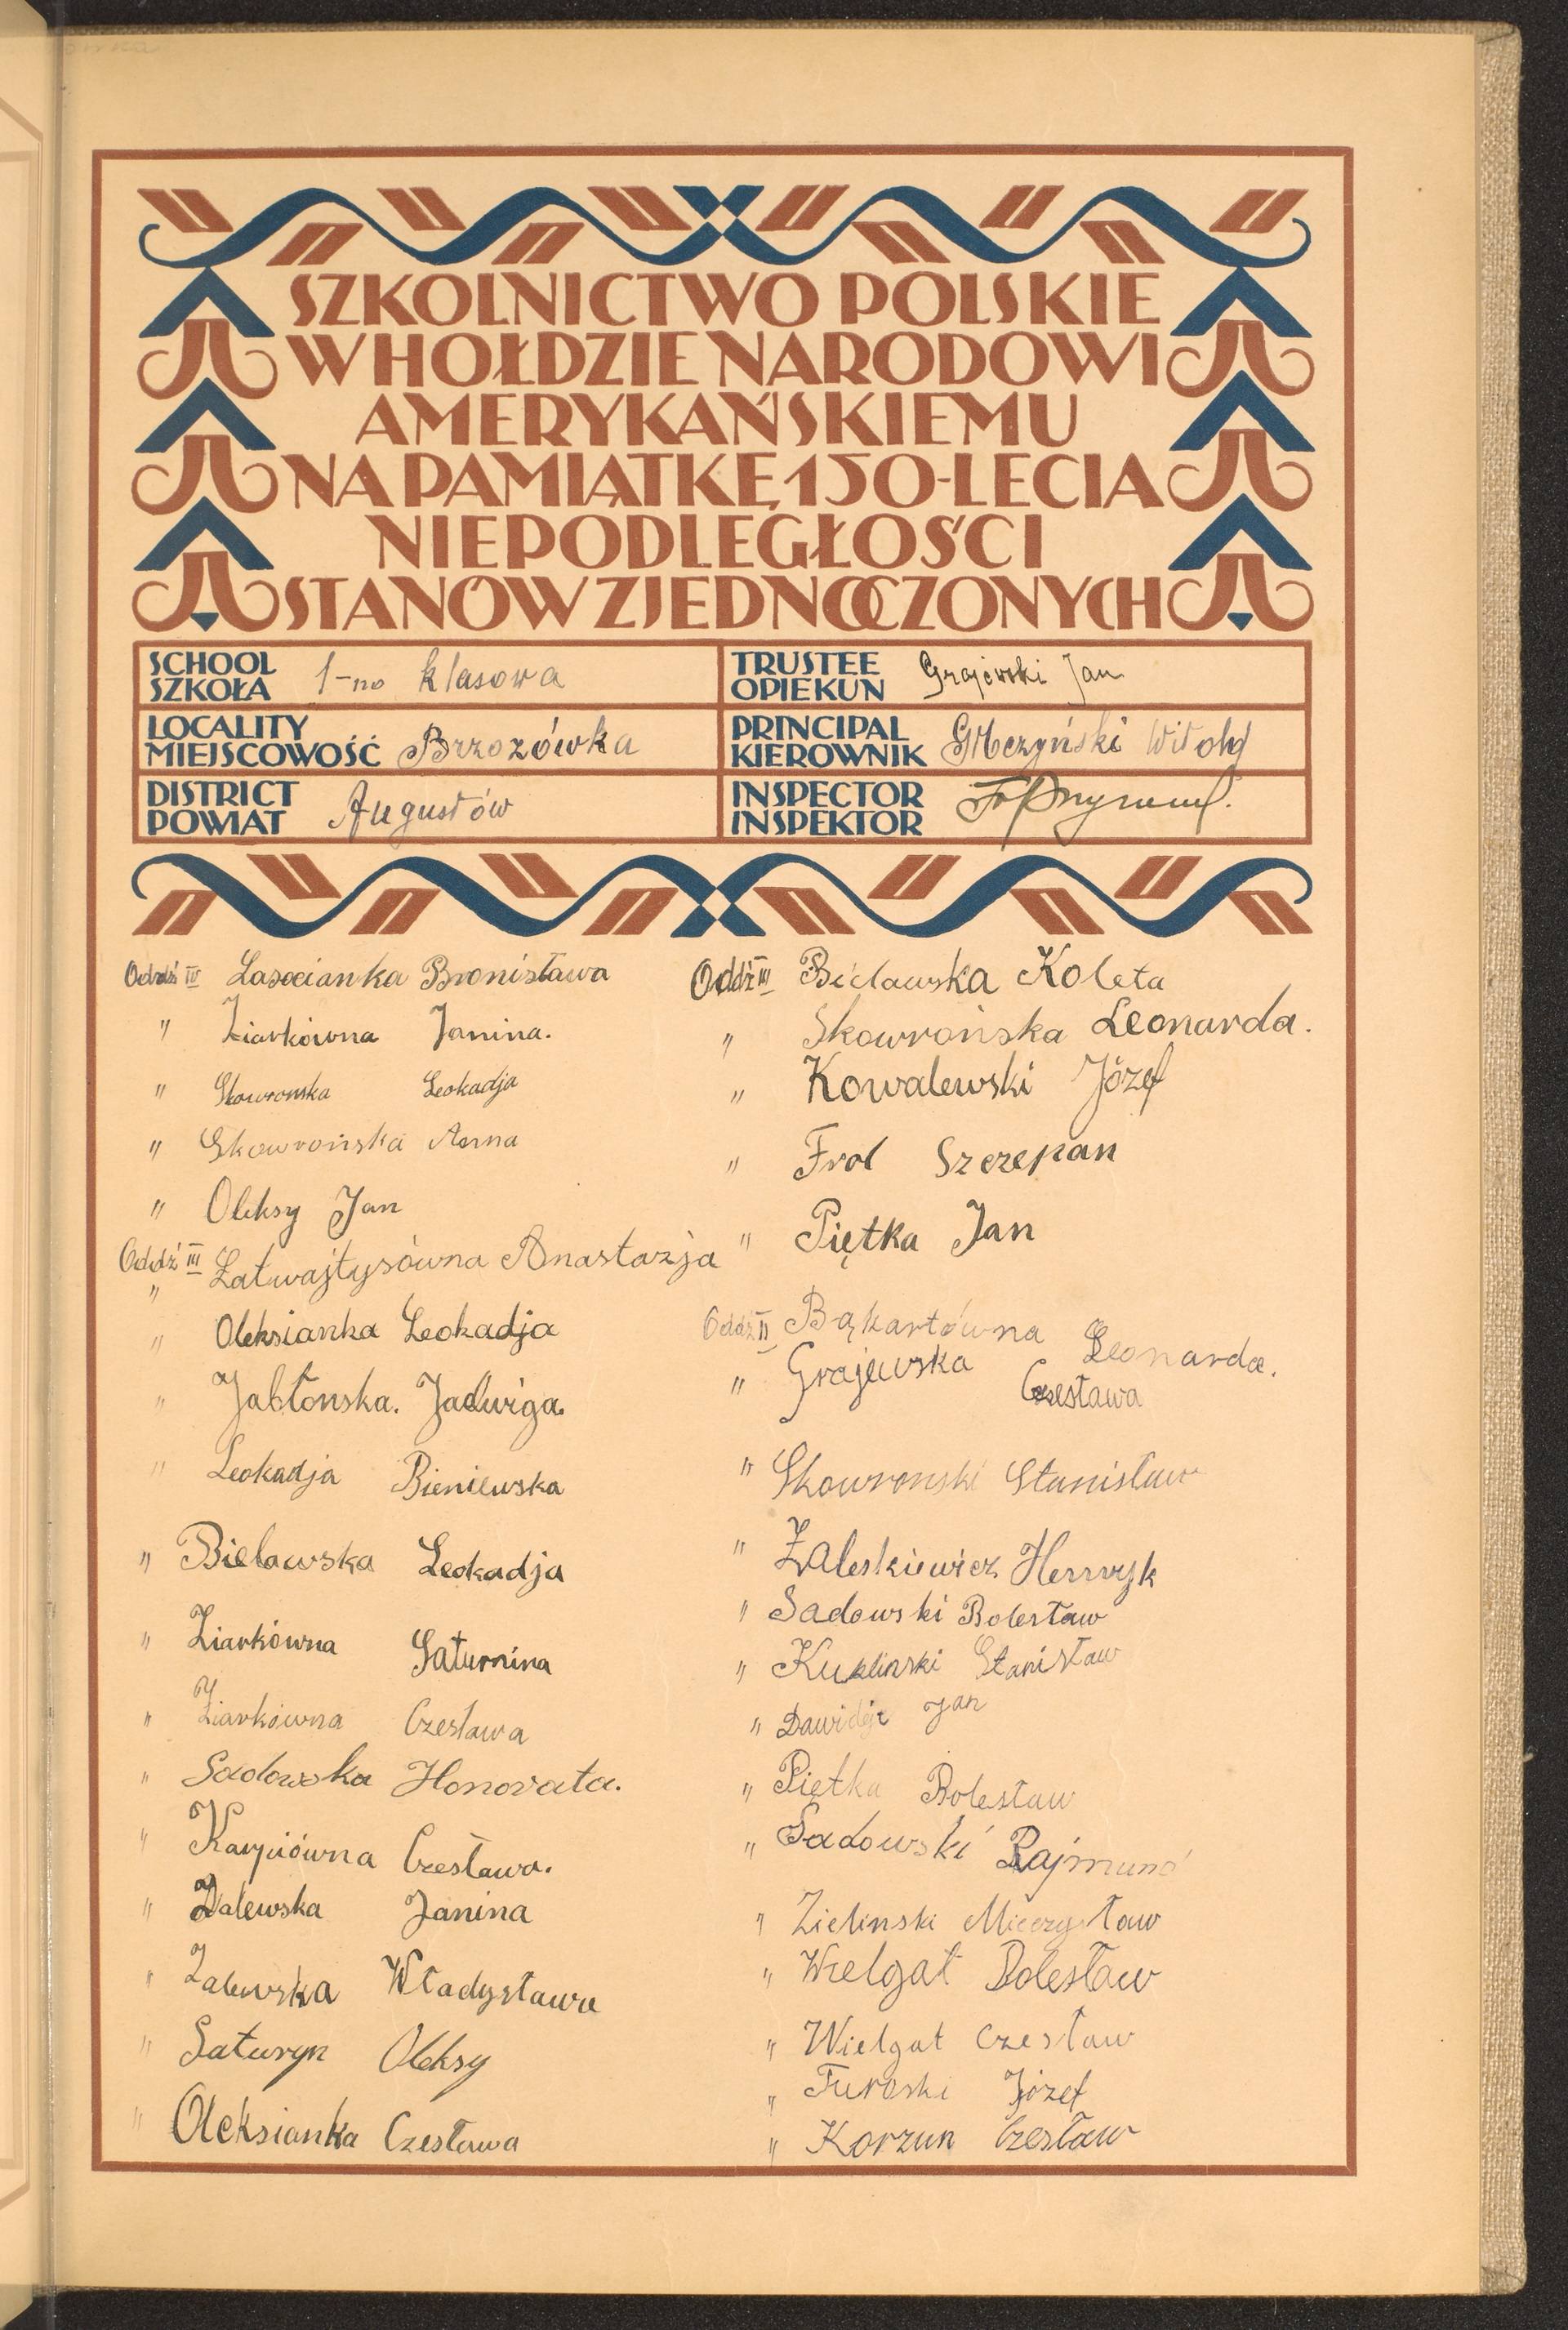 SZKOLNICTWO POLSKIE
W HOŁDZIE NARODOWI
AMERYKAŃSKIEMU
NA PAMIĄTKĘ 150-LECIA
NIEPODLEGŁOŚCI
STANÓW ZJEDNOCZONYCH
SCHOOL
SZKOŁA 1-no klasowa
TRUSTEE
OPIEKUN Grajewski Jan
LOCALITY
MIEJSCOWOŚĆ Brzozówka
PRINCIPAL
KIEROWNIK Witold
DISTRICT
POWIAT Augustów
INSPECTOR
INSPEKTOR
Oddź IV Lasocianka Bronisława
" Ziarkówna Janina.
" Skowronska Leokadja
" Skowrońska Anna
" Oleksy Jan
Oddź III Łatwajtysówna Anastazja
"
" Oleksianka Leokadja
" Jabłonska. Jadwiga.
" Leokadja Bieniewska
" Bielawska Leokadja
" Ziarkówna Saturnina
" Ziarkówna Czesława
" Sadowska Honorata.
" Karpiówna Czesława.
" Zalewska Janina
" Zalewska Władysława
" Saturyn Oleksy
" Oleksianka Czesława
Oddź III Bielawska Koleta
" Skowrońska Leonarda.
" Kowalewski Józef
" Frol Szczepan
" Piętka Jan
Oddź II Bąkartówna Leonarda.
" Grajewska Czesława
" Skowronski Stanisław
" Zaleskiewicz Henryk
" Sadowski Bolesław
" Kuklinski Stanisław
" Jan
" Piętka Bolesław
" Sadowski Rajmund
" Zielinski Mieczysław
" Wielgat Bolesław
" Wielgat Czesław
" Furoski Józef
" Korzun Czesław